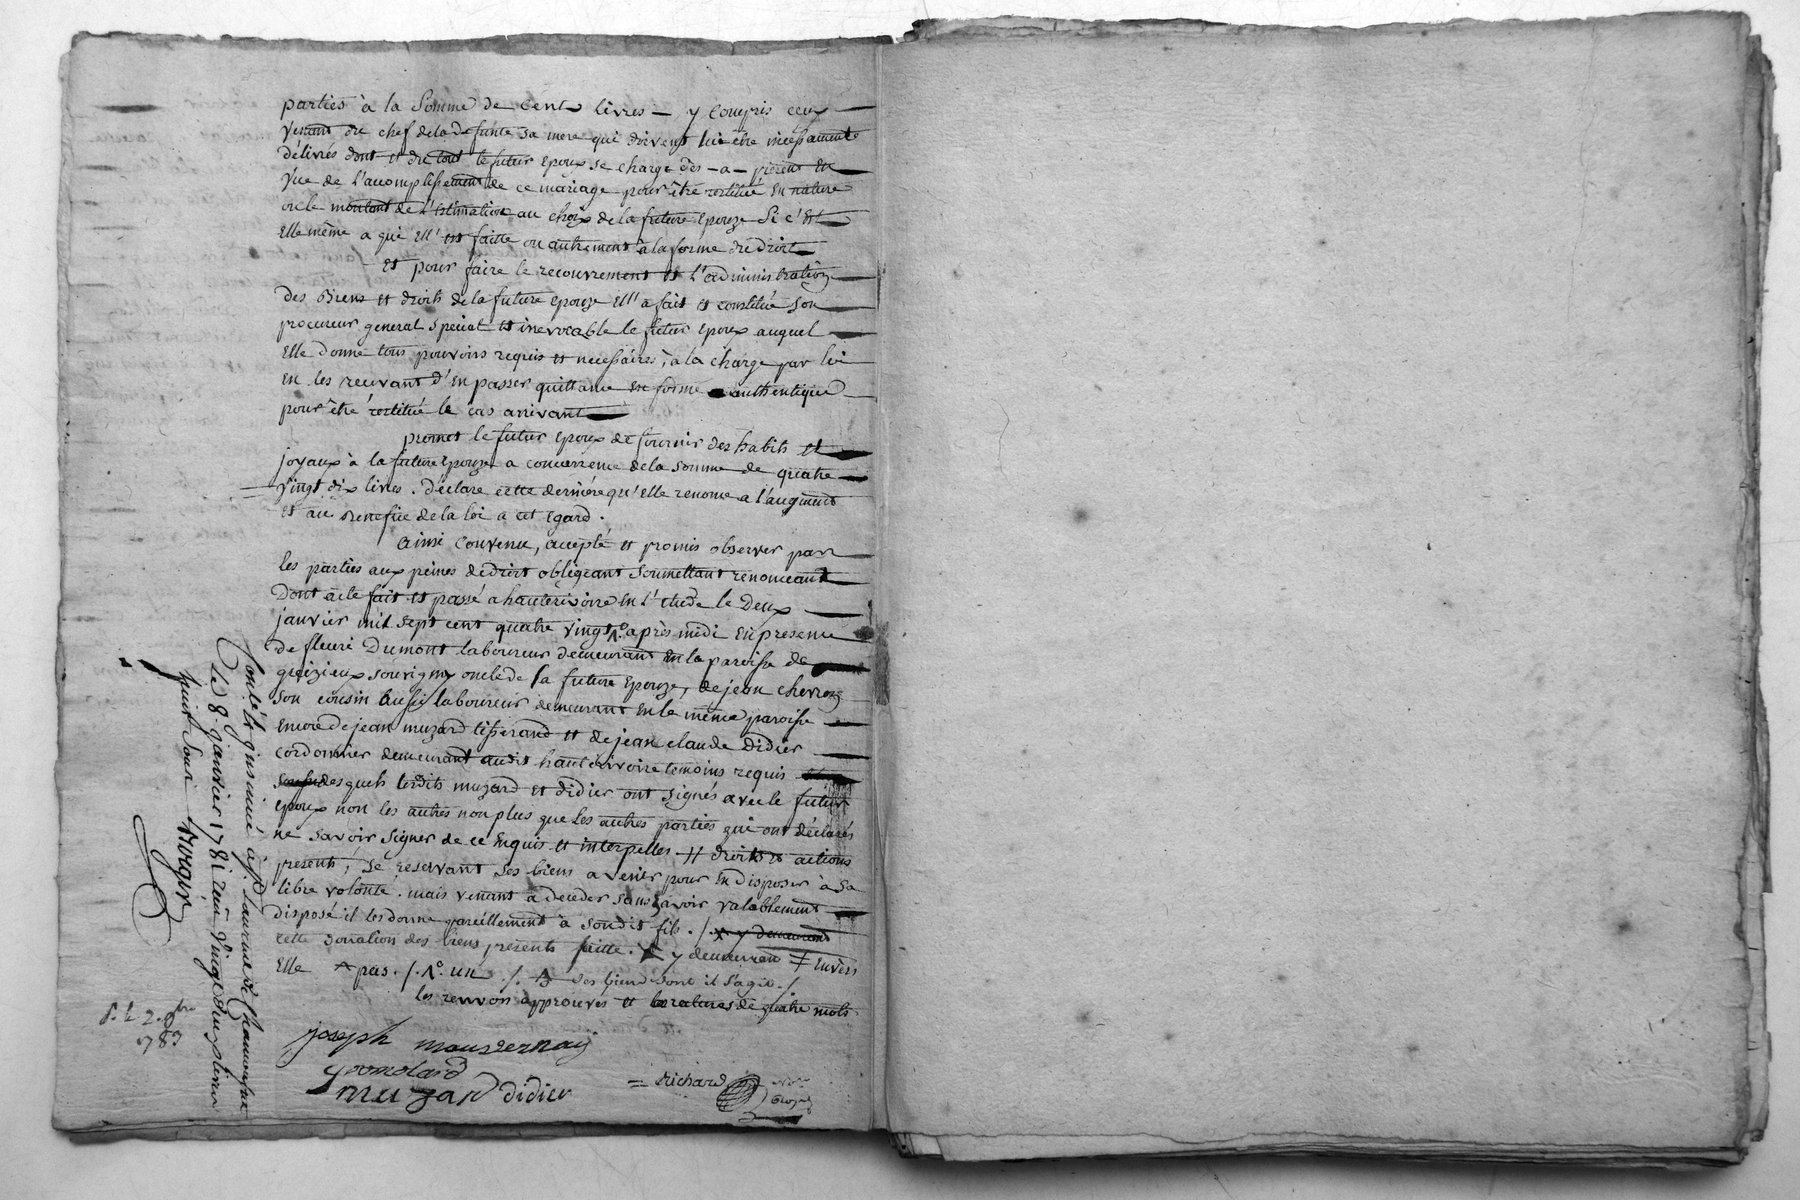 parties à la Somme de Cent livres — y Compris ceux
venant du chef de la defunte sa mere qui doivent lui être incessamment
délivrés dont et du tout le futur Epoux se charge dès-a-présent en
vue de l'acomplissement de ce mariage pour être restitué en nature
ou le montant de l'estimation au choix de la future Epouze Si c'est
Elle même a qui Ell' est faitte ou autrement à la forme du droit
Et pour faire le recouvrement et l'administration
des Biens et droits de la future epouze Ell' a fait et constitué son
procureur general special et irrevocable le futur Epoux auquel
Elle donne tous pouvoirs requis et necessaires, a la charge par lui
en les recevant d'en passer quittance en forme authentique
pour être restitué le cas arrivant
promet le futur Epoux de fournir des habits et
joyaux à la future Epouze a concurrence de la somme de quatre
vingt dix livres. Déclare cette dernière qu'elle renonce a l'augment
et au Benefice de la loi a cet Egard.
Ainsi Convenu, accepté et promis observer par
les parties aux peines de droit obligeant Soumettant renonceant
Dont acte fait et passé a hauterivoire En l'Etude le Deux
janvier mil sept cent quatre vingt Λ° après midi En presence
de fleuri Dumont laboureur demeurant en la paroisse de
greizieux souvigny oncle de la future Epouze, de jean chevron
son cousin Aussi laboureur demeurant en la même paroisse
Encore de jean muzard tisserand et de jean claude didier
cordonnier demeurant audit hauterivoire temoins requis
desquels lesdits muzard et didier ont signés avec le futur
epoux non les autres non plus que les autres parties qui ont déclarés
ne savoir signer de ce Enquis et interpellés # droits et actions
presents, se reservant ses biens a venir pour en disposer à sa
libre volonté. mais venant à deceder sans avoir valablement
disposé il les donne pareillement à sondit fils ./. X y demeurant
cette donation des biens presents faitte. X y demeurant ≠ Envers
Elle ^ pas ./. Λ° un ./. des biens dont il s'agit ./.
les renvois approuvés et les ratures de quatre mots
joseph mouszernay
muzard didier
= Richard
Contlé et insinué à St Laurent de Chamousset
Le 8 janvier 1781 reçu Vingt deux livres
huit sous Bouger
P. le 2. 9bre
783